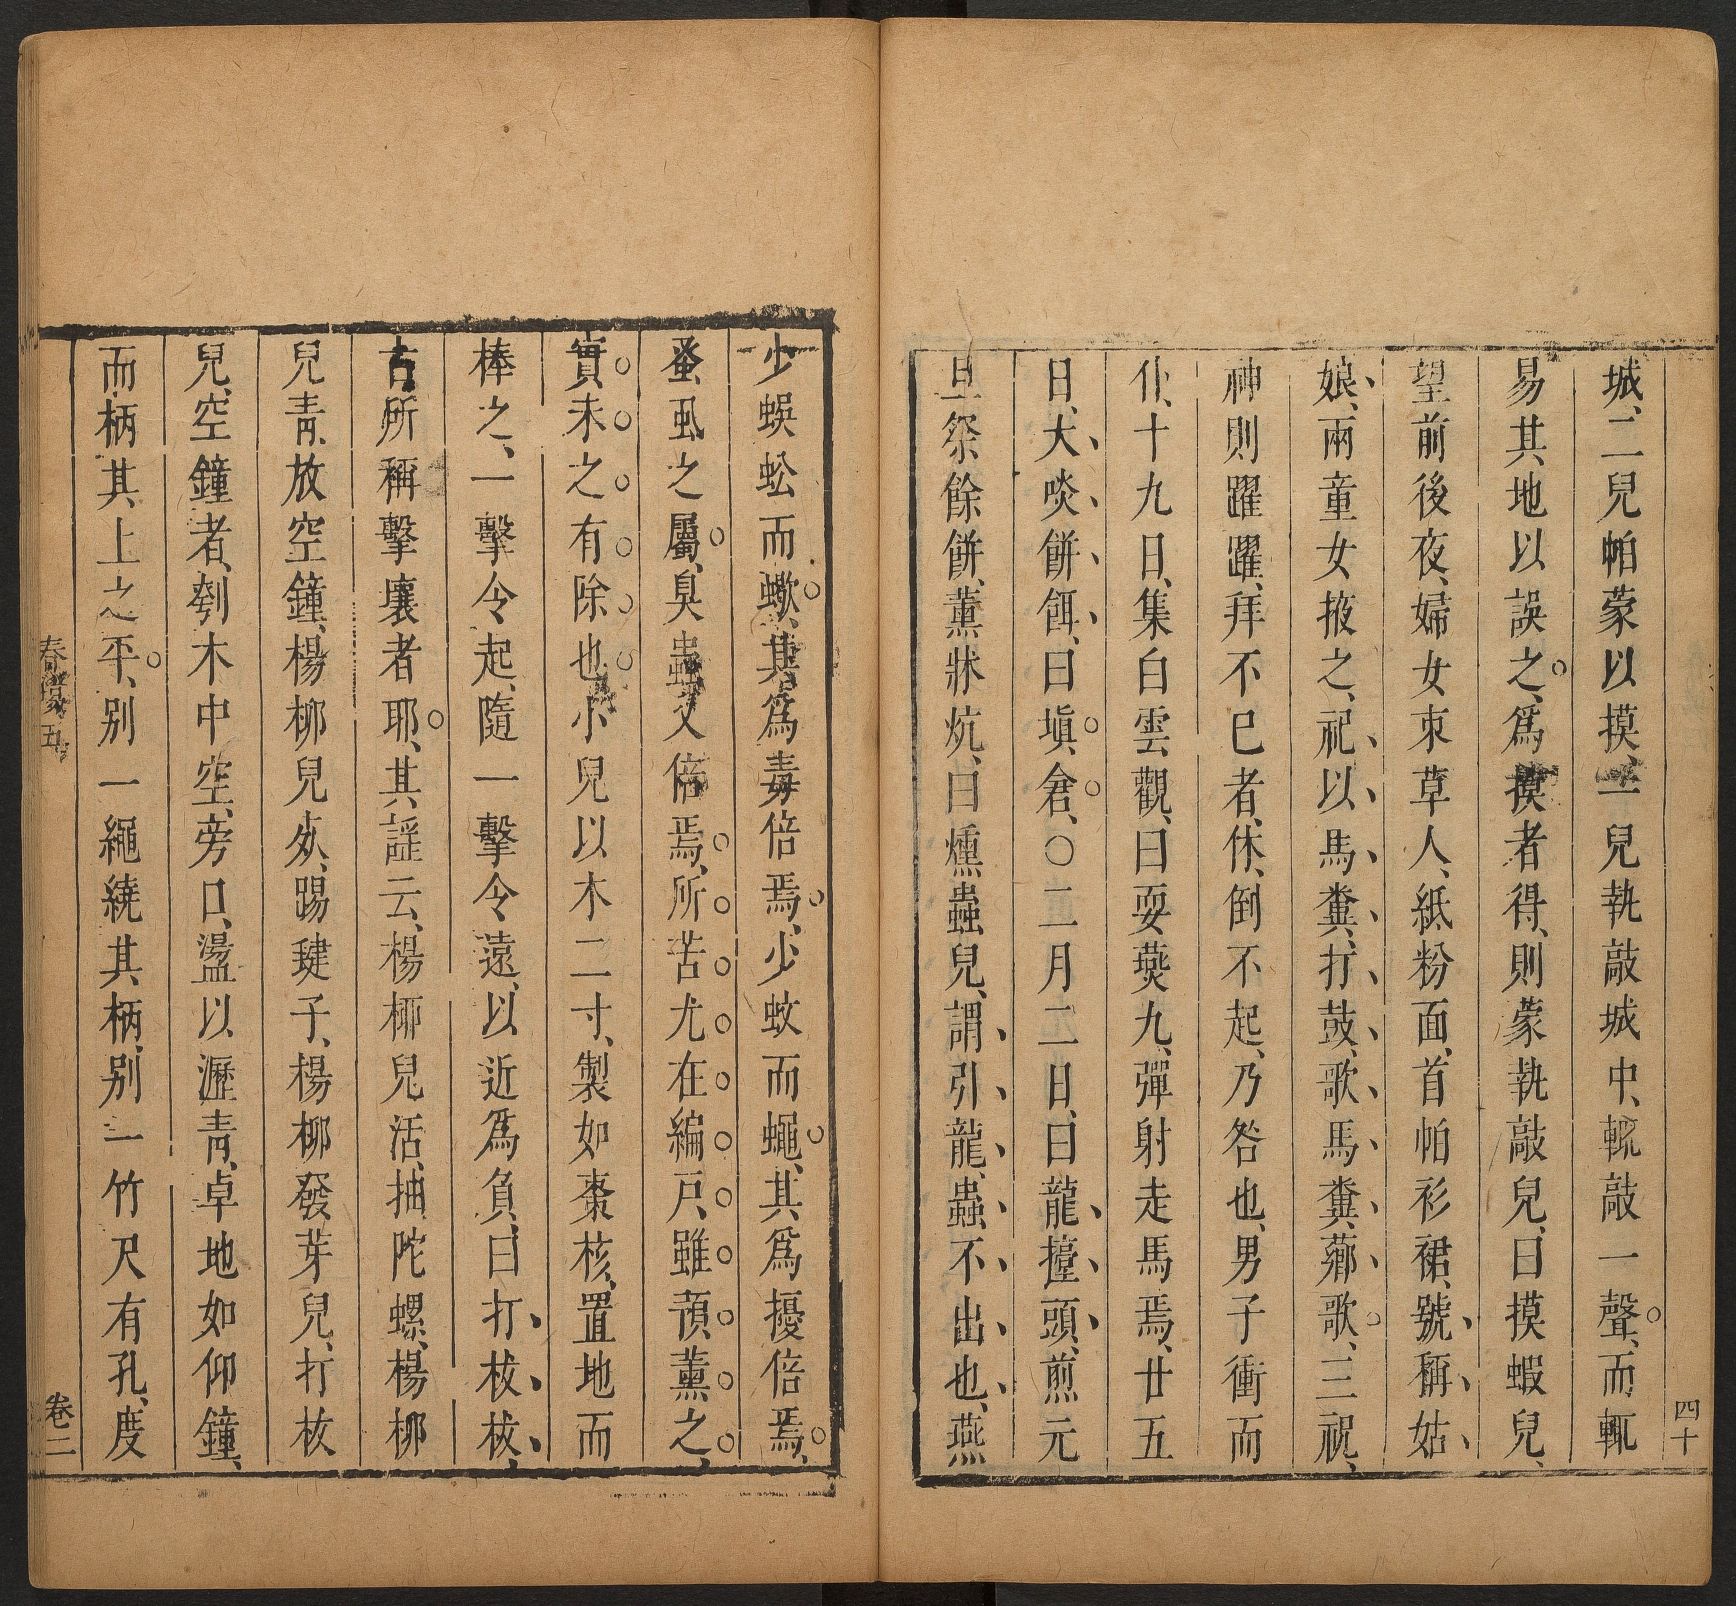 四十
城、二兒帕蒙以摸、一兒執敲城中、輒敲一聲、而輒
易其地以誤之、爲摸者得、則蒙執敲兒、曰摸蝦兒、
望前後夜、婦女束草人、紙粉面、首帕衫裙、號稱姑
娘、兩童女掖之、祀以馬糞、打鼓、歌馬糞薌歌、三祝、
神則躍躍、拜不已者、休、倒不起、乃咎也、男子衝而
仆、十九日、集白雲觀、曰耍燕九、彈射走馬焉、廿五
日、大啖餅餌、曰塡倉、○二月二日、曰龍擡頭、煎元
旦祭餘餅、薰牀炕、曰燻蟲兒、謂引龍、蟲不出也、燕
少蜈蚣而蠍、其爲毒倍焉、少蚊而蠅、其爲擾倍焉、
蚤虱之屬、臭蟲又倍焉、所苦尤在編戸、雖預薰之、
實未之有除也、小兒以木二寸、製如棗核、置地而
棒之、一擊令起、隨一擊令遠、以近爲負、曰打柭柭、
古所稱擊壤者耶、其謡云、楊柳兒活、抽陀螺、楊柳
兒青、放空鐘、楊柳兒死、踢毽子、楊柳發芽兒、打柭
兒、空鐘者、刳木中空、旁口、盪以瀝青、卓地如仰鐘、
而柄其上之平、别一繩繞其柄、别一竹尺有孔、度
春場五
卷二